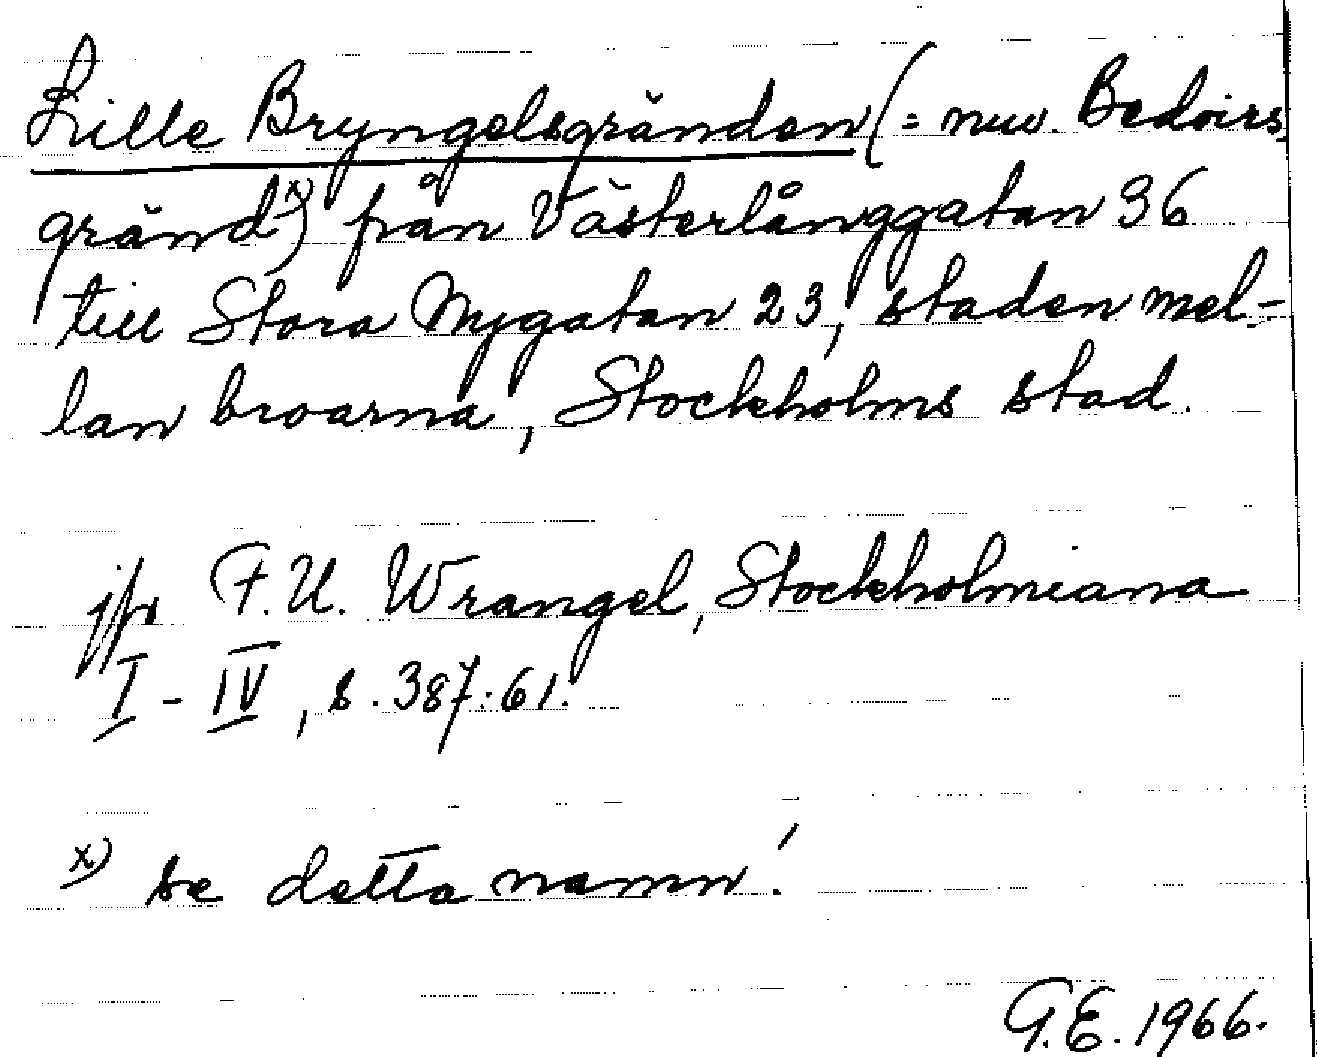 Lille Bryngelsgränden (= nuv. Bedoirs
gränd x)) från Västerlånggatan 36
till Stora Nygatan 23, staden mel-
lan broarna, Stockholms stad.
jfr F.U. Wrangel, Stockholmiana
I - IV, s. 387:61.
x) se detta namn!
G.E. 1966.